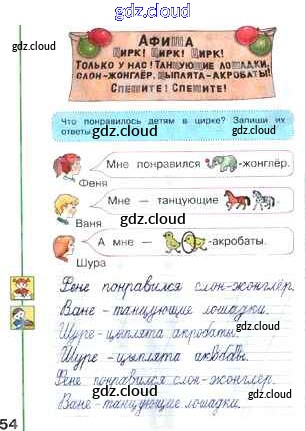 gdz.cloud
gdz.cloud
gdz.cloud
АФИША
ЦИРК! ЦИРК! ЦИРК!
ТОЛЬКО У НАС! ТАНЦУЮЩИЕ ЛОШАДКИ,
СЛОН-ЖОНГЛЁР, ЦЫПЛЯТА-АКРОБАТЫ!
СПЕШИТЕ! СПЕШИТЕ!
Что понравилось детям в цирке? Запиши их
ответы.
gdz.cloud
Мне понравился -жонглёр.
Феня
gdz.cloud
Мне — танцующие
Ваня
gdz.cloud
А мне — -акробаты.
Шура
gdz.cloud
Фене понравился слон-жонглёр.
Ване - танцующие лошадки.
Шуре - цыплята акробаты.
gdz.cloud
Шуре - цыплята акробаты.
Фене понравился слон-жонглёр.
Ване - танцующие лошадки.
54
gdz.cloud